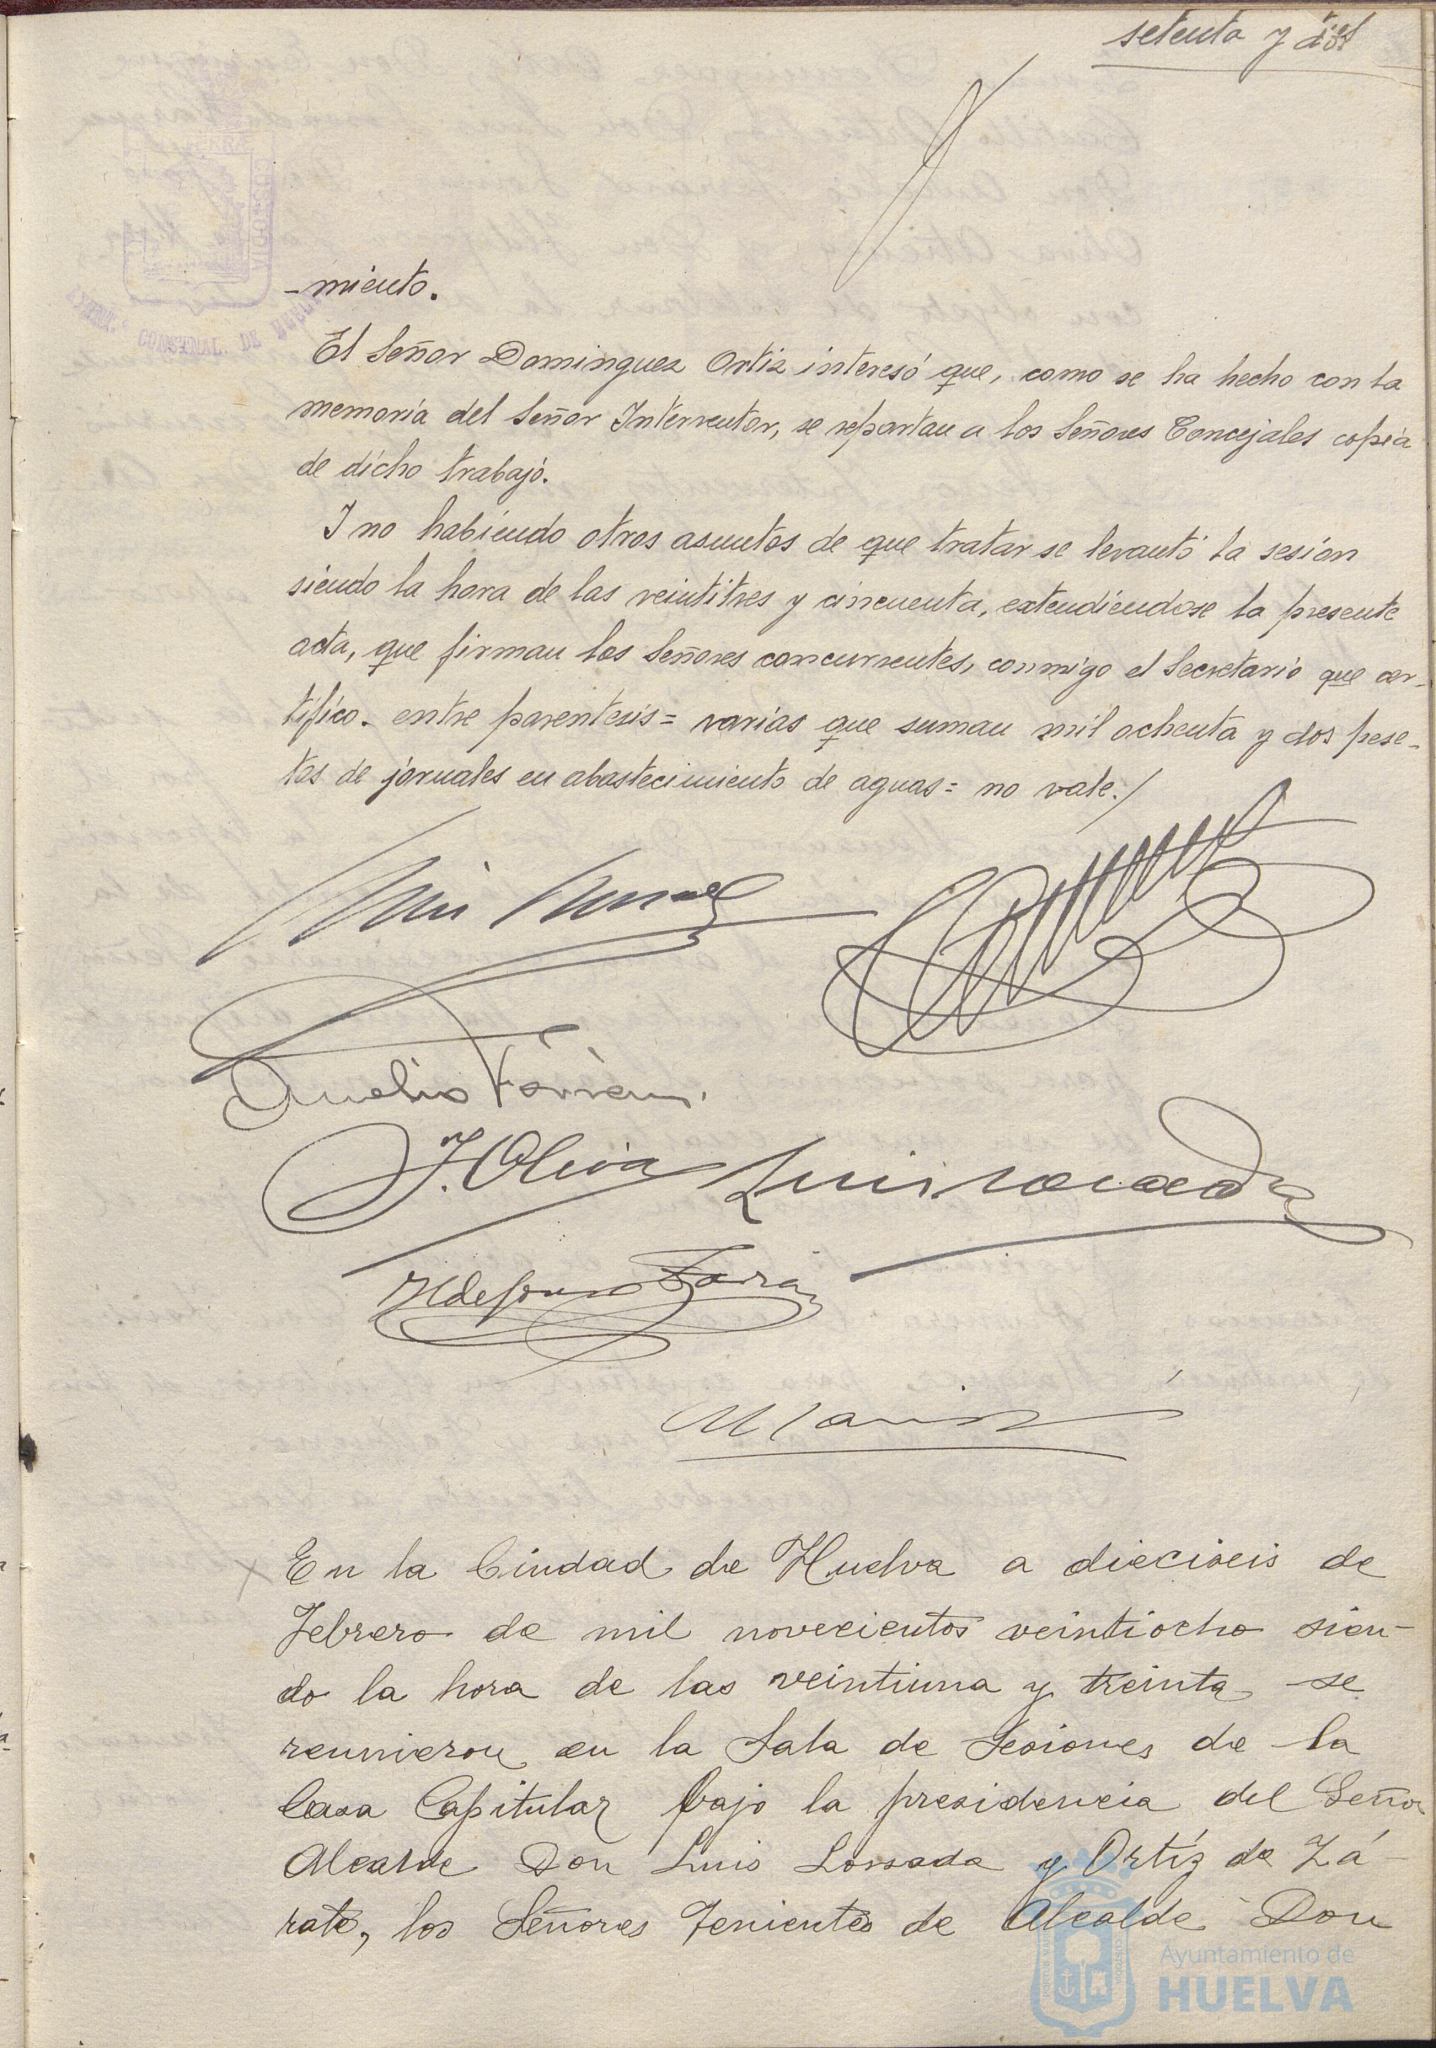 setenta y dos
-miento.
El Señor Dominguez Ortiz interesó que, como se ha hecho con la
memoria del Señor Interventor, se repartan a los Señores Concejales copia
de dicho trabajo.
I no habiendo otros asuntos de que tratar se levantó la sesion
siendo la hora de las veintitres y cincuenta, extendiendose la presente
acta, que firman los Señores concurrentes, conmigo el Secretario que cer-
tifico. entre parentesis= varias que suman mil ochenta y dos pese-
tas de jornales en abastecimiento de aguas= no vale./
J. Oliva
Ildefonso
En la Ciudad de Huelva a dieciseis de
Febrero de mil novecientos veintiocho sien-
do la hora de las veintiuna y treinta se
reunieron en la Sala de Sesiones de la
Casa Capitular bajo la presidencia del Señor
Alcalde Don Luis Lossada y Ortíz de Zá-
rate, los Señores Tenientes de Alcalde Don
Ayuntamiento de
HUELVA